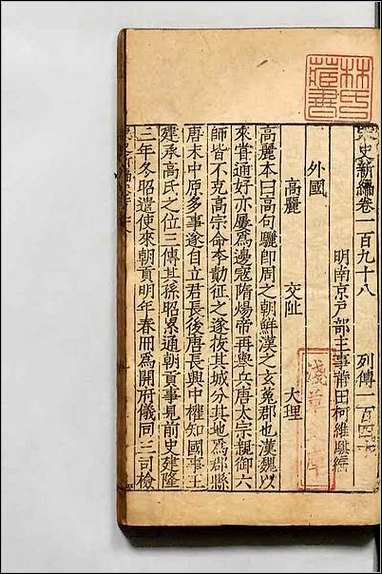 宋史新編卷一百九十八　列傳一百四十
明南京戶部主事莆田柯維騏編
外國
高麗　交趾　大理
高麗本曰高句驪即周之朝鮮漢之玄菟郡也漢魏以
來嘗通好亦屢為邊寇隋煬帝再舉兵唐太宗親御六
師皆不克高宗命李勣征之遂拔其城分其地為郡縣
唐末中原多事遂自立君長後唐長興中權知國事王
建承高氏之位三傳其孫昭累通朝貢事見前史建隆
三年冬昭遣使來朝貢明年春冊為開府儀同三司檢
林氏藏書